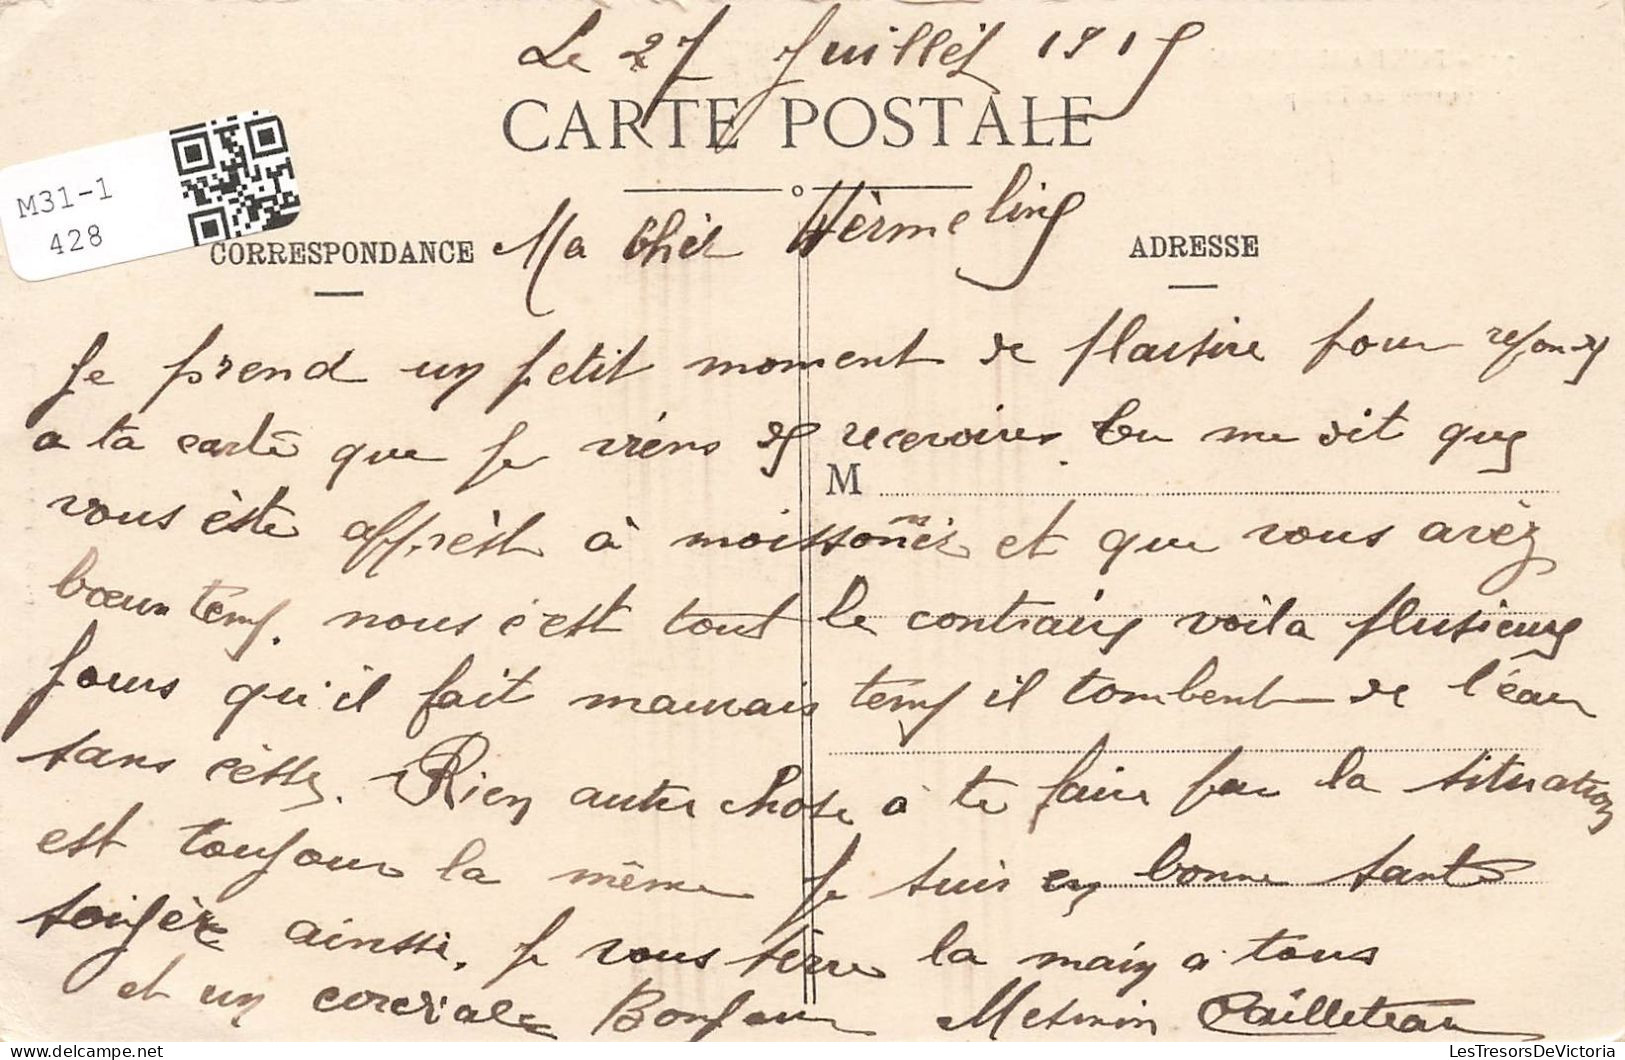 Le 27 Juillet 1915
CARTE POSTALE
M31-1
428
CORRESPONDANCE
Ma Chér Hèrmeling
ADRESSE
Je prend un petit moment de plaisire pour repondre
a ta carte que je viéns de recevoires Tu me dit que
M
vous éste apprèst à moissonnér et que vous avéz
bœun temp. nous c'est tout le contraire voila plusieurs
jours qu'il fait mauvais temp il tombent de l'éau
sans césse. Rien autre chose a te faire par la situation
est toujour la même je suis en bonne sante
ainssi. je vous sèrre la main a tous
et un cordiale Bonjour Mesmin Cailleteau
LesTresorsDeVictoria